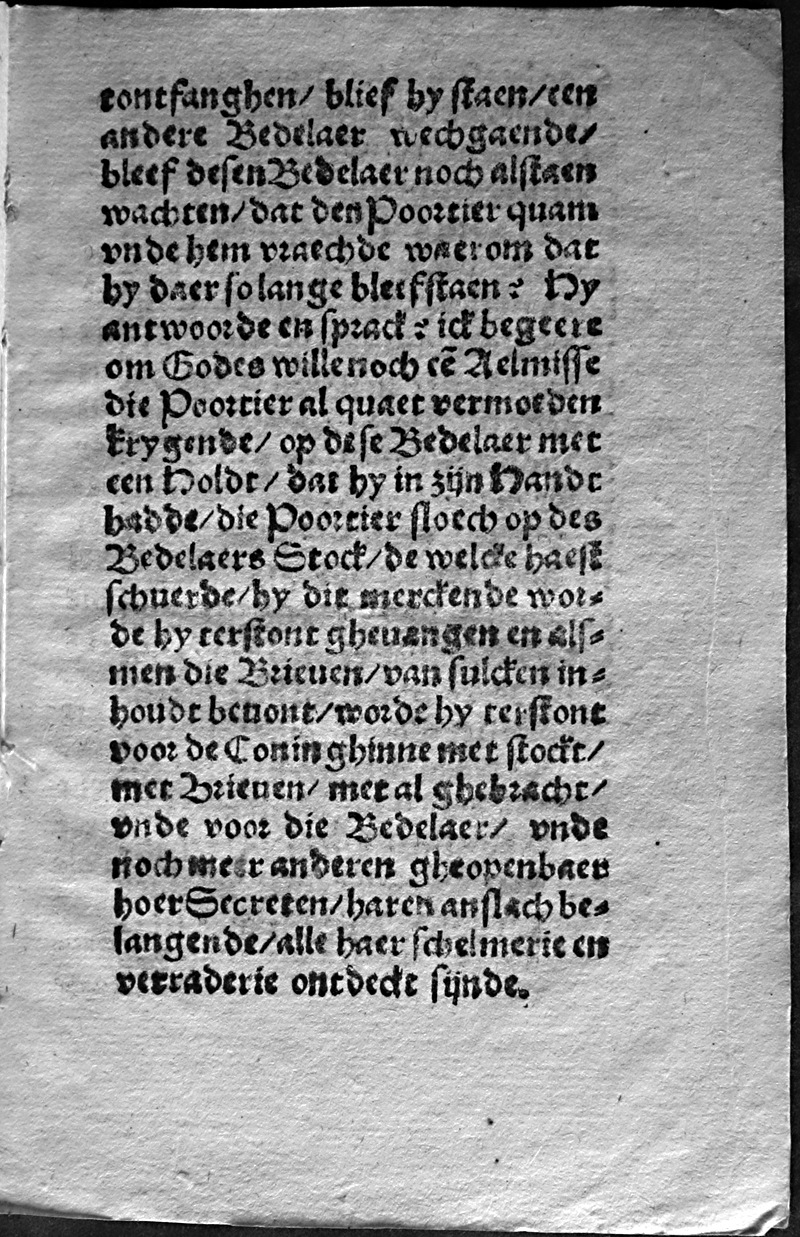 tontfanghen/ blief by staen/een
andere Bedelaer wechgaende/
bleef desen Bedelaer noch alstaen
wachten/dat den Poortier quam
vnde hem vraechde waerom dat
hy daer so lange bleef staen? Hy
antwoorde en sprack? ick begeere
om Godes wille noch eẽ Aelmisse
die Poortier al quaet vermoeden
krygende/ op dese Bedelaer met
een Holdt/ dat hy in zijn Handt
hadde/die Poortier sloech op des
Bedelaers Stock/de welcke haest
schuerde/hy dit merckende wor-
de hy terstont gheuangen en als-
men die Brieuen/van sulcken in-
houdt beuont/worde hy terstont
voor de Coninghinne met stockt/
met Brieuen/ met al ghebracht/
vnde voor die Bedelaer/ vnde
noch meer anderen gheopenbaert
hoer Secreten/haren anslach be-
langende/alle haer schelmerie en
verraderie ontdeckt sijnde.